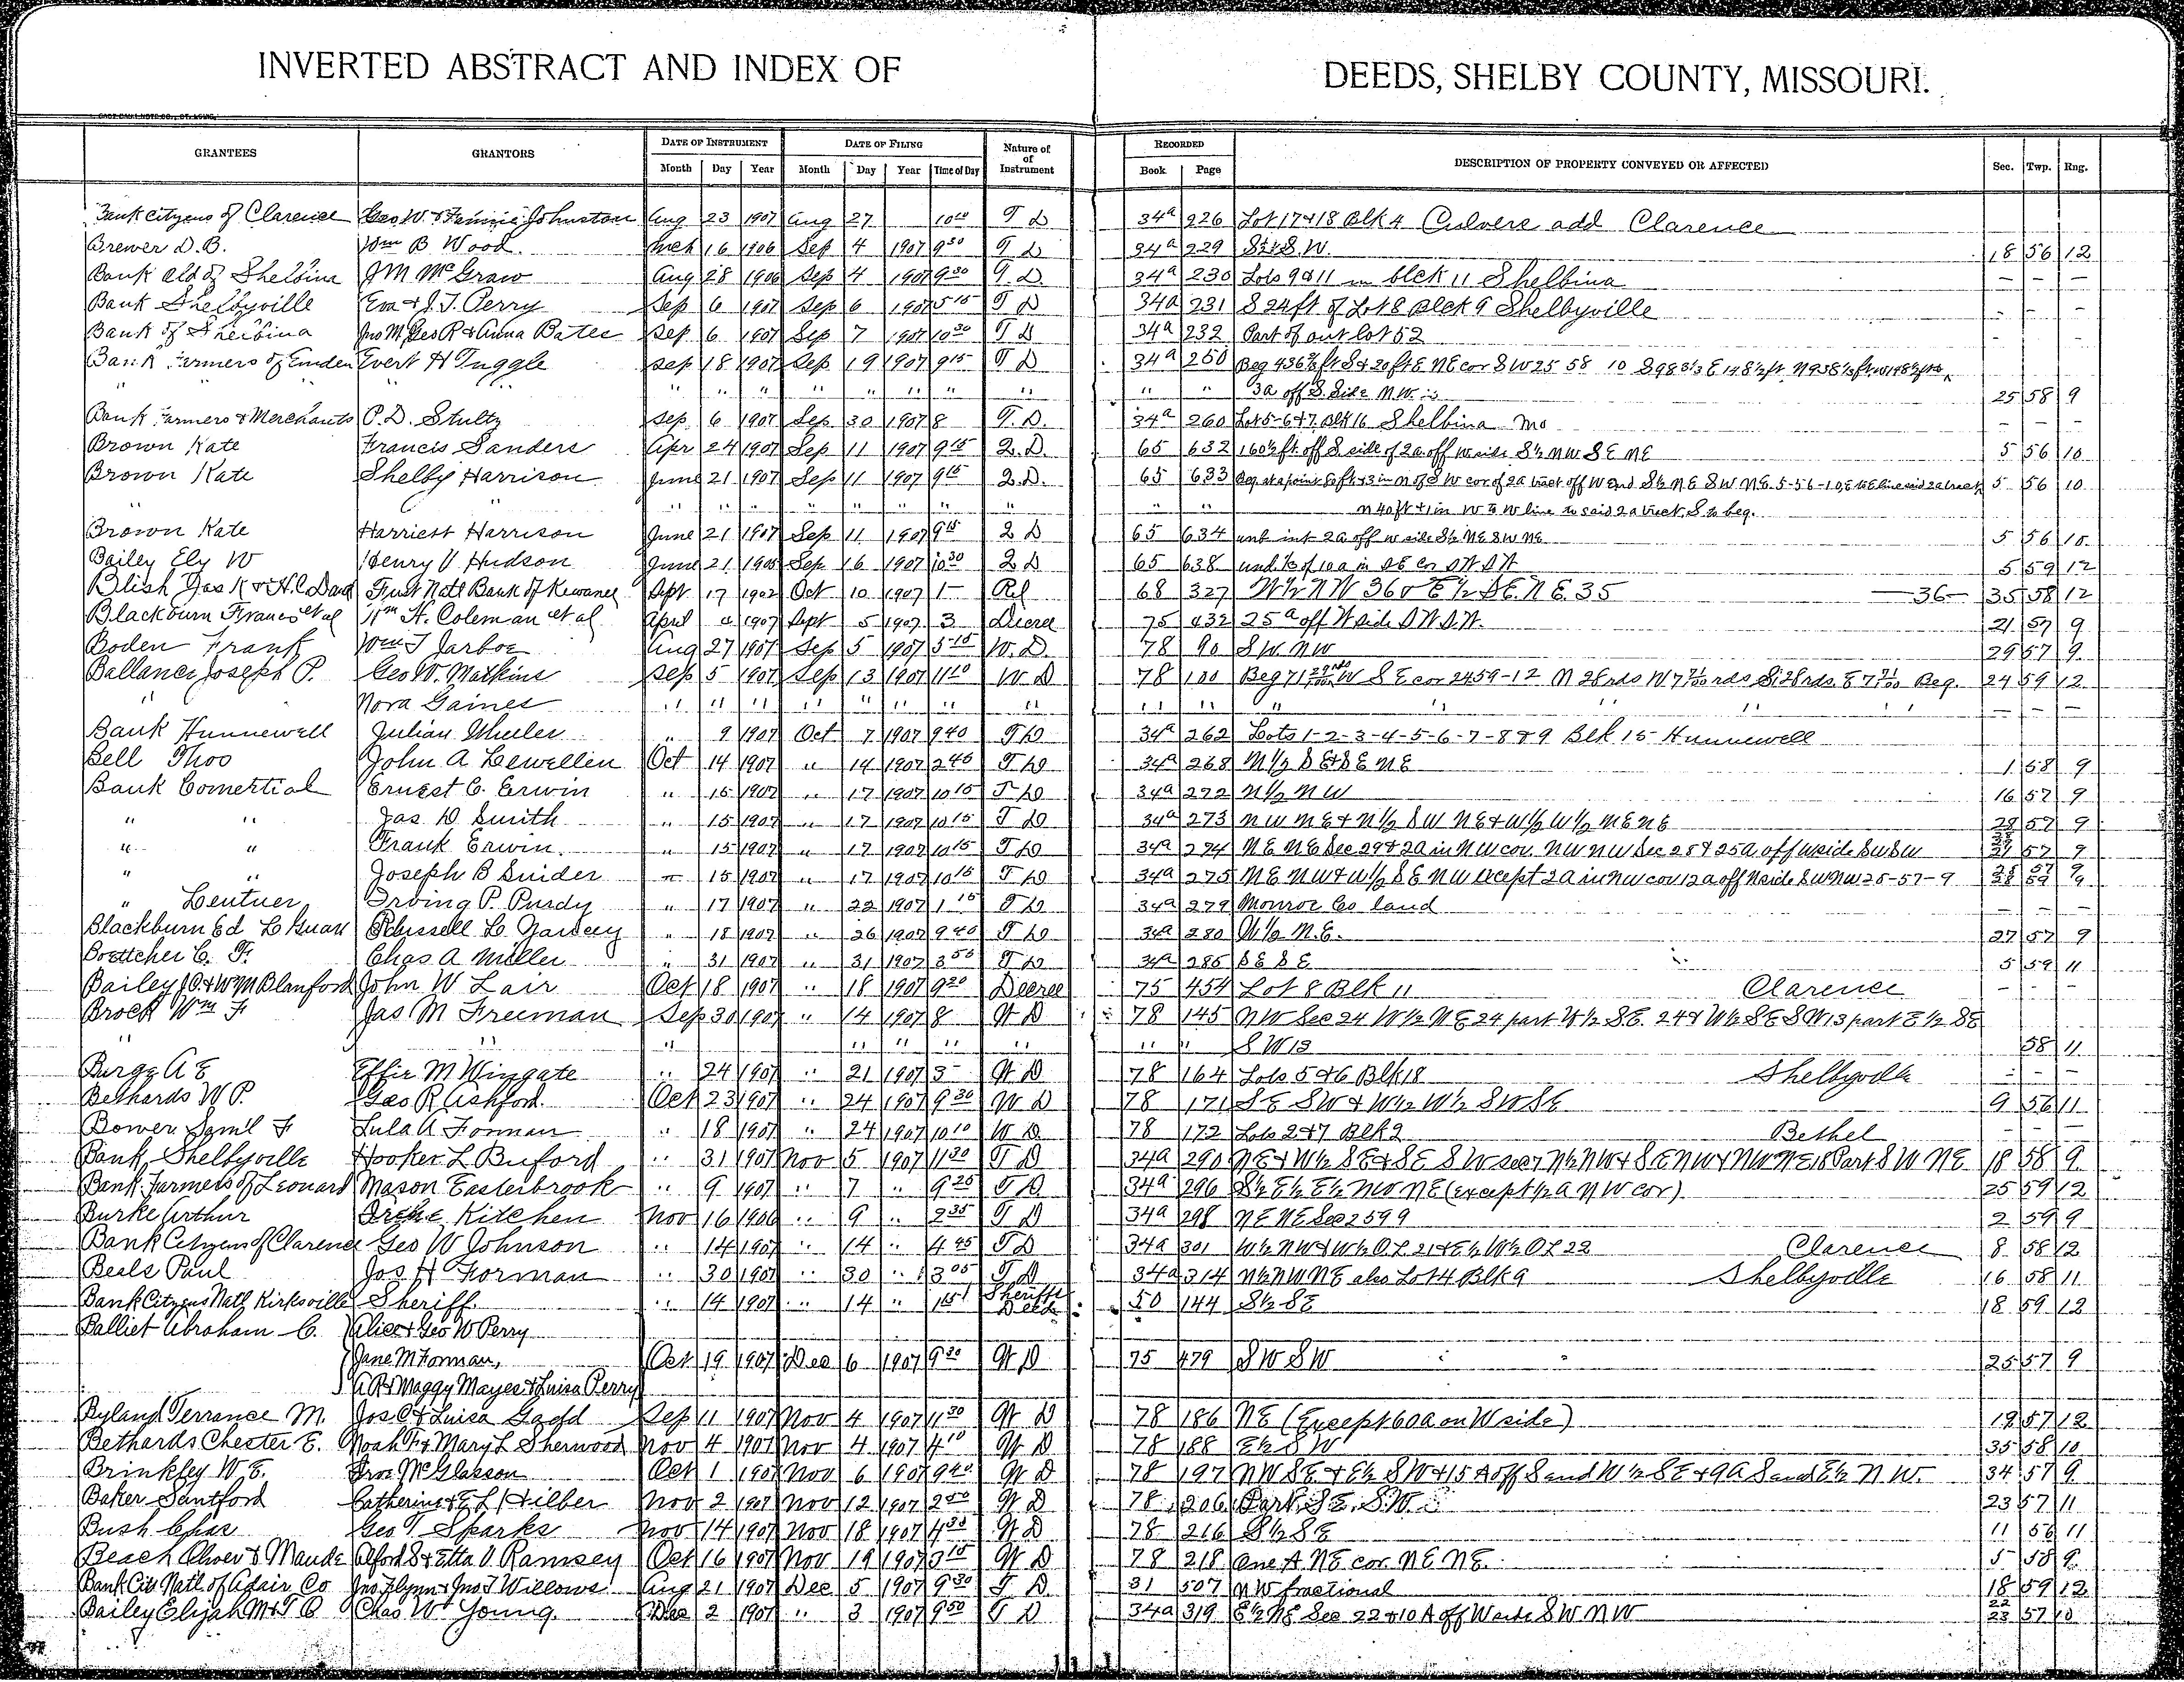 INVERTED ABSTRACT AND INDEX OF DEEDS, SHELBY COUNTY, MISSOURI.
GRANTEES GRANTORS DATE OF INSTRUMENT DATE OF FILING Nature of Instrument RECORDED DESCRIPTION OF PROPERTY CONVEYED OR AFFECTED Sec. Twp. Rng.
Month Day Year Month Day Year Time of Day Book Page
Bank Citizens of Clarence Geo W. & Fannie Johnston Aug 23 1907 Aug 27 10 T D 34a 226 Lot 17 & 18 Blk 4 Culvers add Clarence
Brewer D.B. Wm B Wood Mch 16 1906 Sep 4 1907 9 30 T D 34a 229 18 56 12
Bank Old of Shelbina J M McGraw Aug 28 1906 Sep 4 1907 9 30 T D 34a 230 Lots 9 & 11 in blck 11 Shelbina — — -
Bank Shelbyville Eva & J. T. Perry Sep 6 1907 Sep 6 1907 5 15 T D 34a 231 S 24 ft of Lot 8 Blck 9 Shelbyville - - -
Bank of Shelbina Jno M, Geo R & Anna Bates Sep 6 1907 Sep 7 1907 10 30 T D 34a 232 Part of out lot 52 - - -
Bank Farmers of Emden Evert H Tuggle Sep 18 1907 Sep 19 1907 9 15 T D 34a 250 Beg 436 ft S & 20 ft E NE cor SW 25 58 10
" " " " " " " " " " 3a off S. Side N.W. 25 58 9
Bank Farmers & Merchants P.D. Stultz Sep 6 1907 Sep 30 1907 8 T. D. 34a 260 Lot 5-6 & 7 Blk 16 Shelbina Mo - - -
Brown Kate Francis Sanders Apr 24 1907 Sep 11 1907 9 15 2. D. 65 632 160½ ft. off S side of 2a off W side S½ NW SE NE 5 56 10
Brown Kate Shelby Harrison June 21 1907 Sep 11 1907 9 15 2. D. 65 633 Beg at a point 80 ft & 3 in N of SW cor of 2a tract off W end S½ NE SW NE. 5-56-10, E to E line said 2a tract 5 56 10
" " " " " " " " " N 40 ft & 1 in W to W line to said 2a tract, S to beg.
Brown Kate Harriest Harrison June 21 1907 Sep 11 1907 9 15 2 D 65 634 und int 2a off W side S½ NE SW NE 5 56 10
Bailey Ely W Henry V Hudson June 21 Sep 16 1907 10 30 2 D 65 638 5 59 12
Blish Jas K & H.C. First Natl Bank of Kewanee Sept 17 1902 Oct 10 1907 1 — Rel 68 327 W½ NW 36 & E½ SE. NE. 35 —36— 35 58 12
Blackburn Frances et al Wm H. Coleman et al April 4 1907 Sept 5 1907 3 Decree 75 432 25a off W side 21 57 9
Boden Frank Wm T Jarboe Aug 27 1907 Sep 5 1907 5-15 W. D. 78 90 SW NW 29 57 9
Ballance Joseph P. Geo W. Watkins Sep 5 1907 Sep 13 1907 11 10 W. D 78 100 Beg 71 W SE cor 24 59-12 N 28 rds W 7 rds S. 28 rds. E 7 Beg. 24 59 12
" Nora Gaines " " " " " " " " " " " " " " — — —
Bank Hunnewell Julian Wheeler " 9 1907 Oct 7 1907 9 40 T D 34a 262 Lots 1-2-3-4-5-6-7-8 & 9 Blk 15 Hunnewell
Bell Thos John A Lewellen Oct 14 1907 " 14 1907 2 45 T D 34a 268 N½ SE & SE NE 1 58 9
Bank Comertial Ernest C. Erwin " 15 1907 " 17 1907 10 15 T D 34a 272 N½ NW 16 57 9
" " Jas D Smith " 15 1907 " 17 1907 10 15 T D 34a 273 NW NE & N½ SW NE & W½ W½ NE NE 28 57 9
" " Frank Erwin " 15 1907 " 17 1907 10 15 T D 34a 274 NE NE Sec 29 & 2a in NW cor. NW NW Sec 28 & 25a, off W side SW SW 57 9
" " Joseph B Snider " 15 1907 " 17 1907 10 15 T D 34a 275 NE NW & W½ SE NW except 2a in NW cor 12a off N side SW NW 28-57-9
" Lentner Irving P. Purdy " 17 1907 " 22 1907 1 15 T D 34a 279 Monroe Co land — — —
Blackburn Ed L Guar Russell L " 18 1907 " 26 1907 9 40 T D 34a 280 W½ N.E. 27 57 9
Boettcher C. F. Chas A Miller " 31 1907 " 31 1907 3 55 T D 34a 285 SE SE 5 59 11
Bailey J O. & W M Blanford John W Lair Oct 18 1907 " 18 1907 9 20 Decree 75 454 Lot 8 Blk 11 Clarence - - -
Brock Wm F Jas M Freeman Sep 30 1907 " 14 1907 8 W D 78 145 NW Sec 24 W½ NE 24 part W½ SE. 24 & W½ SE SW 13 part E½ SE
" " " " " " " " SW 13 58 11
Burge A E Effie M Wingate " 24 1907 " 21 1907 3 - W D 78 164 Lots 5 & 6 Blk 18 Shelbyville - - -
Bethards W P. Geo R Ashford Oct 23 1907 " 24 1907 9 30 W D 78 171 SE SW & W½ W½ SW SE 9 56 11
Bower Saml F Lula A Forman " 18 1907 " 24 1907 10 10 W D 78 172 Lots 2 & 7 Blk 2 Bethel - - -
Bank Shelbyville Hooker L Buford " 31 1907 Nov 5 1907 11 30 T D 34a 290 NE & W½ SE & SE SW sec 7 N½ NW & SE NW & NW NE 18 Part SW NE 18 58 9
Bank Farmers of Leonard Mason Easterbrook " 9 1907 " 7 " 9 25 T D 34a 296 S½ E½ E½ NW NE (except ½ a NW cor) 25 59 12
Burke Arthur Kitchen Nov 16 1906 " 9 " 2 35 T D 34a 298 NE NE Sec 2 59 9 2 59 9
Bank Citizens of Clarence Geo W Johnson " 14 1907 " 14 " 4 45 T D 34a 301 W½ NW & W½ O.L 21 & E½ W½ OL 22 Clarence 8 58 12
Beals Paul Jos. H Forman " 30 1907 " 30 " 3 05 T D 34a 314 N½ NW NE also Lot 4 Blk 9 Shelbyville 16 58 11
Bank Citizens Natl Kirksville Sheriff " 14 1907 " 14 " 1 Sheriffs Deed 50 144 S½ SE 18 59 12
Balliet Abraham C. Alice & Geo W Perry
Jane M Forman, Oct 19 1907 Dec 6 1907 9 30 W D 75 479 SW SW 25 57 9
A R & Maggy Mayes & Luisa Perry
Byland Terrance M. Jos. C & Luisa Gadd Sep 11 1907 Nov 4 1907 11 30 W D 78 186 NE (Except 60 a on W side) 19 57 12
Bethards Chester E. Noah F & Mary L Sherwood Nov 4 1907 Nov 4 1907 4 10 W D 78 188 E½ SW 35 58 10
Brinkley W E. McGlasson Oct 1 1907 Nov 6 1907 9 40 W D 78 197 NW SE & E½ SW & 15 A off S end W½ SE & 9 A S end E½ N.W. 34 57 9
Baker Santford Catherine & E L Hilber Nov 2 1907 Nov 12 1907 2 W D 78 206 Part SE. SW. 23 57 11
Bush Chas Geo T Sparks Nov 14 1907 Nov 18 1907 4 30 W D 78 216 S½ SE 11 56 11
Beach Oliver & Maude Alford S & Etta V. Ramsey Oct 16 1907 Nov 19 1907 3 15 W D 78 218 One A NE cor. NE NE. 5 58 9
Bank Citz Natl. of Adair Co Jno Flynn & Jno T Willows Aug 21 1907 Dec 5 1907 9 30 T. D. 31 507 NW fractional 18 59 12
Bailey Elijah M & T B Chas W Young Dec 2 1907 " 3 1907 9 50 T D 34a 319 E½ NE Sec 22 & 10 A off W side SW NW 22 23 57 10